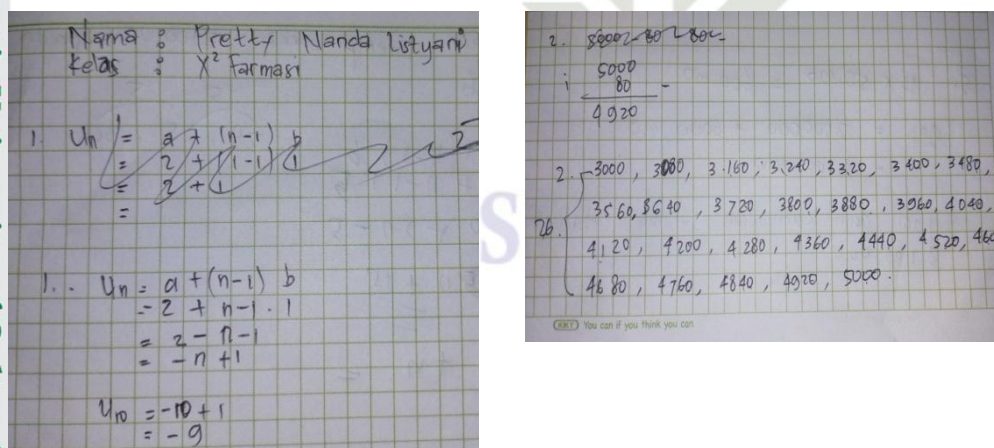 Nama : Pretty Nanda Listyani
Kelas : X² Farmasi
1. Un = a + (n-1) b
= 2 + (1-1) 1
= 2 + 1
=
1.. Un = a + (n-1) b
= 2 + n-1 . 1
= 2 - n-1
= -n +1
U10 = -10+1
= -9
2.
5000
80 -
4920
2. 3000, 3080, 3.160, 3.240, 3320, 3400, 3480,
3560, 3640, 3720, 3800, 3880, 3960, 4040,
26. 4120, 4200, 4280, 4360, 4440, 4520, 460
4680, 4760, 4840, 4920, 5000.
KKY You can if you think you can
S